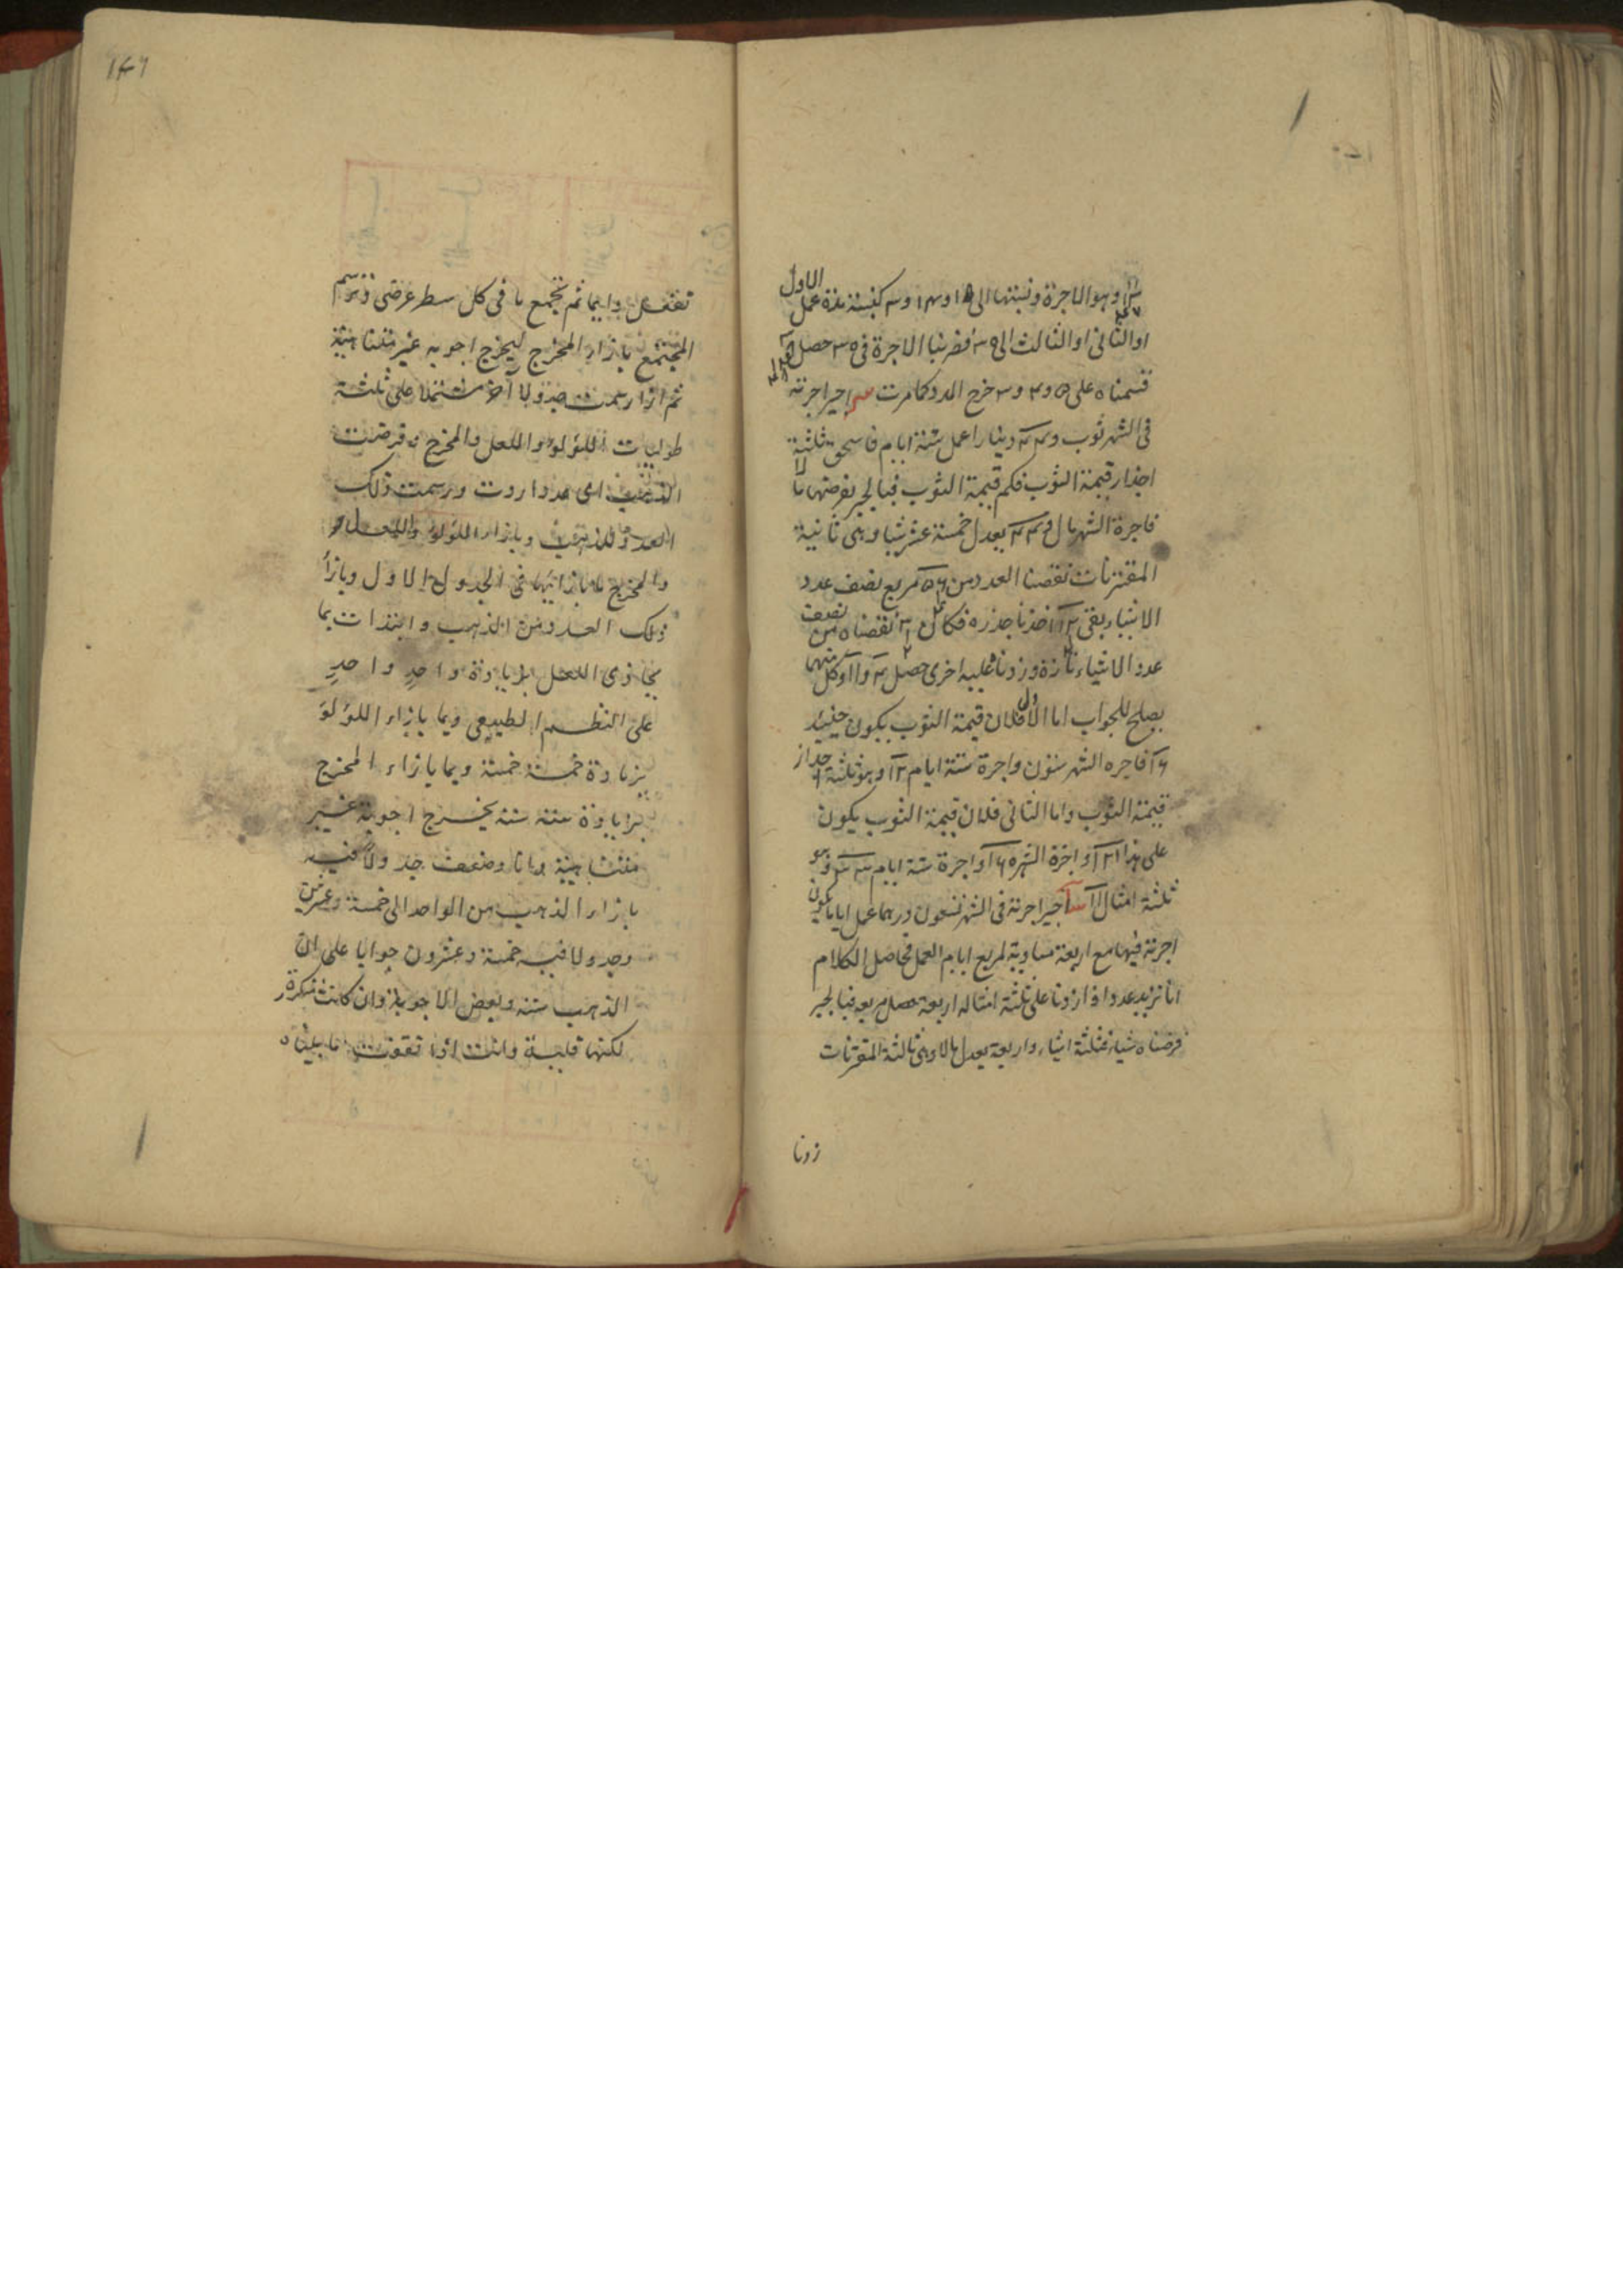 وهو الاجرة ونسبتها الى ١٥ و ١٣ و ٣ كنسبة مدة عمل الاول
او الثانى او الثالث الى ٣٩ فضربنا الاجرة فى ٣٥ حصل
قسمناه على ٥ و ٣ و ٣ خرج المدد كما مرت اجير اجرته
فى الشهر ثوب و دينارا عمل ستة ايام فاستحق ثلثة
اجذار قيمة الثوب فكم قيمة الثوب فبالجبر نفرضها مالا
فاجرة الشهر مال و يعدل خمسة عشر شيا وهى ثانية
المقترنات نقصنا العدد من مربع نصف عدد
الاشياء بقى اخذنا جذره فكان نقصناه من نصف
عدد الاشياء تارة وزدناه عليه اخرى حصل وكل منهما
يصلح للجواب اما الاول فلان قيمة الثوب يكون حينئذ
فاجره الشهر ستون واجرة ستة ايام ١٢ وهو ثلثة اجذار
قيمة الثوب واما الثانى فلان قيمة الثوب يكون
على هذا واجرة الشهر واجرة ستة ايام وهو
ثلثة امثال اجير اجرته فى الشهر تسعون درهما عمل اياما يكون
اجرته فيها مع اربعة مساوية لمربع ايام العمل فحاصل الكلام
انا نريد عددا اذا زدنا على ثلثة امثاله اربعة حصل مربعه فبالجبر
فرضناه شياء فثلثة اشياء واربعة يعدل مالا وهى ثالثة المقترنات
زدنا
١٤٦
تفعل دايما ثم تجمع ما فى كل سطر عرضى وترسم
المجتمع بازاء المخرج ليخرج اجوبه غير متناهية
ثم اذا رسمت جدولا آخر مشتملا على ثلثة
طوليات اللؤلؤ واللعل والمخرج وفرضت
الذهب اى عدد اردت ورسمت ذلك
العدد للذهب وبازاء اللؤلؤ واللعل
والمخرج ما بازائها فى الجدول الاول وبازاء
ذلك العدد من الذهب وابتدات بما
يحاذى اللعل بزيادة واحد واحد
على النظم الطبيعى وبما بازاء اللؤلؤ
بزيادة خمسة خمسة وبما بازاء المخرج
بزيادة ستة ستة يخرج اجوبة غير
متناهية وانا وضعت جدولا فيه
بازاء الذهب من الواحد الى خمسة وعشرين
وجدولا فيه خمسة وعشرون جوابا على ان
الذهب ستة وبعض الاجوبة وان كانت متكررة
لكنها قليلة وانت اذا تفقدت ما بيناه